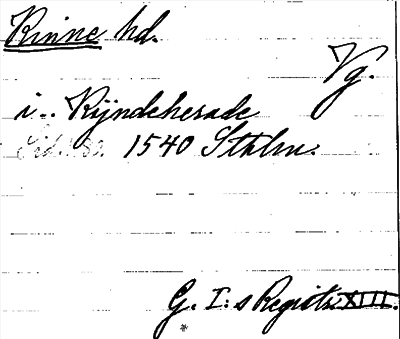 Kinne hd.
Vg.
i.. Kijndeherade
1540 Sthlm.
G. I:s Registr. XIII.